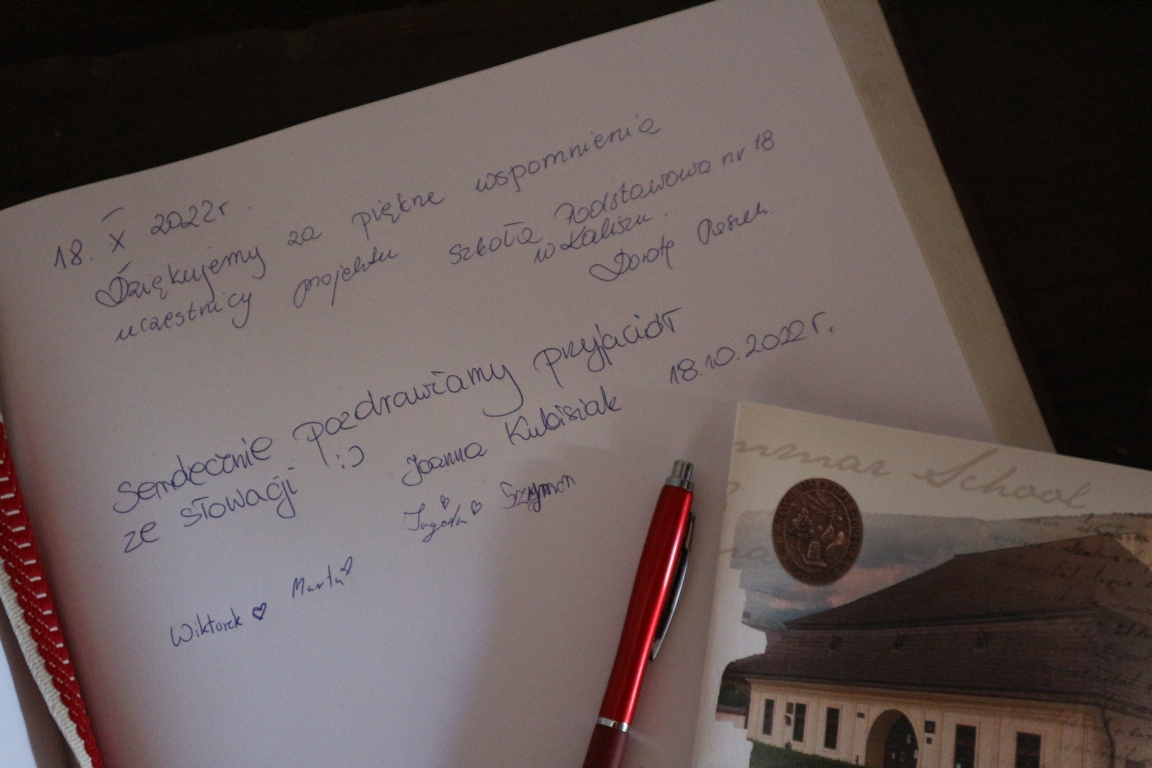 18. X 2022r.
Dziękujemy za piękne wspomnienia
uczestnicy projektu Szkoła Podstawowa nr 18
w Kaliszu.
Dorota
Serdecznie pozdrawiamy przyjaciół
ze słowacji! :)
Joanna Kubisiak 18.10.2022r.
Jagoda Szymon
Wiktorek Marta
mmar School